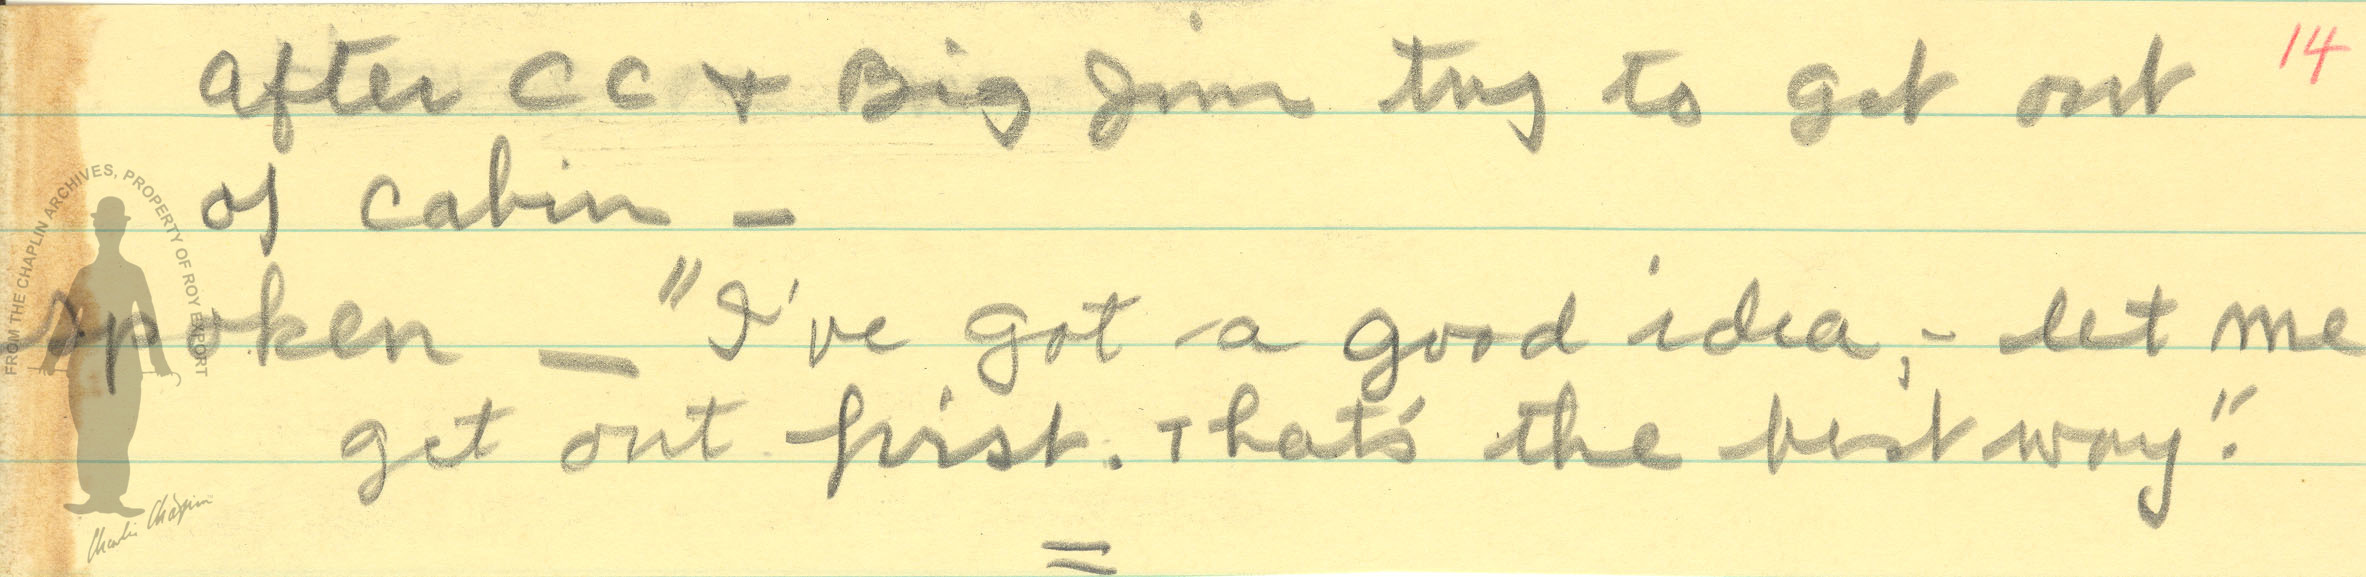 14
after CC + Big Jim try to get out
of cabin –
spoken — "I've got a good idea, - let me
get out first. That's the best way".
=
FROM THE CHAPLIN ARCHIVES, PROPERTY OF ROY EXPORT
Charlie Chaplin